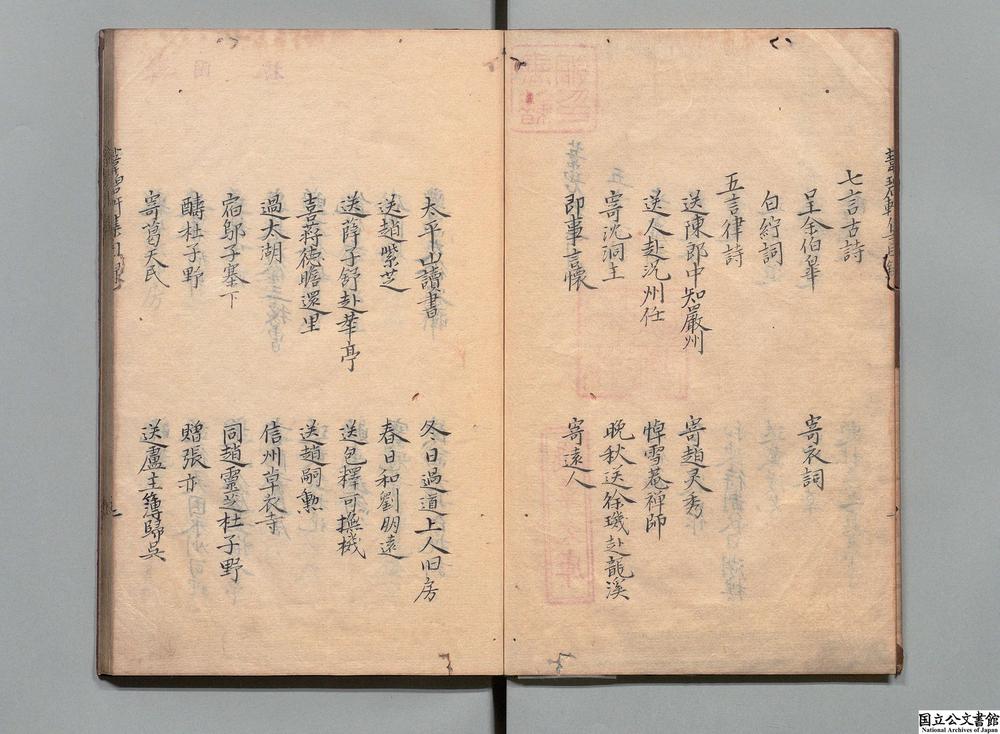 七言古詩
呈余伯皐
寄衣詞
白紵詞
五言律詩
送陳郎中知嚴州
寄趙灵秀
送人赴沅州任
悼雪菴禅師
寄沈洞主
晩秋送徐璣赴龍溪
即事言懷
寄遠人
太平山讀書
冬日過道上人旧房
送趙紫芝
春日和劉明遠
送薛子舒赴華亭
送包釋可撫機
喜蔣德瞻還里
送趙嗣勲
過太湖
信州草衣寺
宿鄔子寨下
同趙靈芝杜子野
酬杜子野
贈張亦
寄葛天民
送盧主簿歸吴
国立公文書館
National Archives of Japan